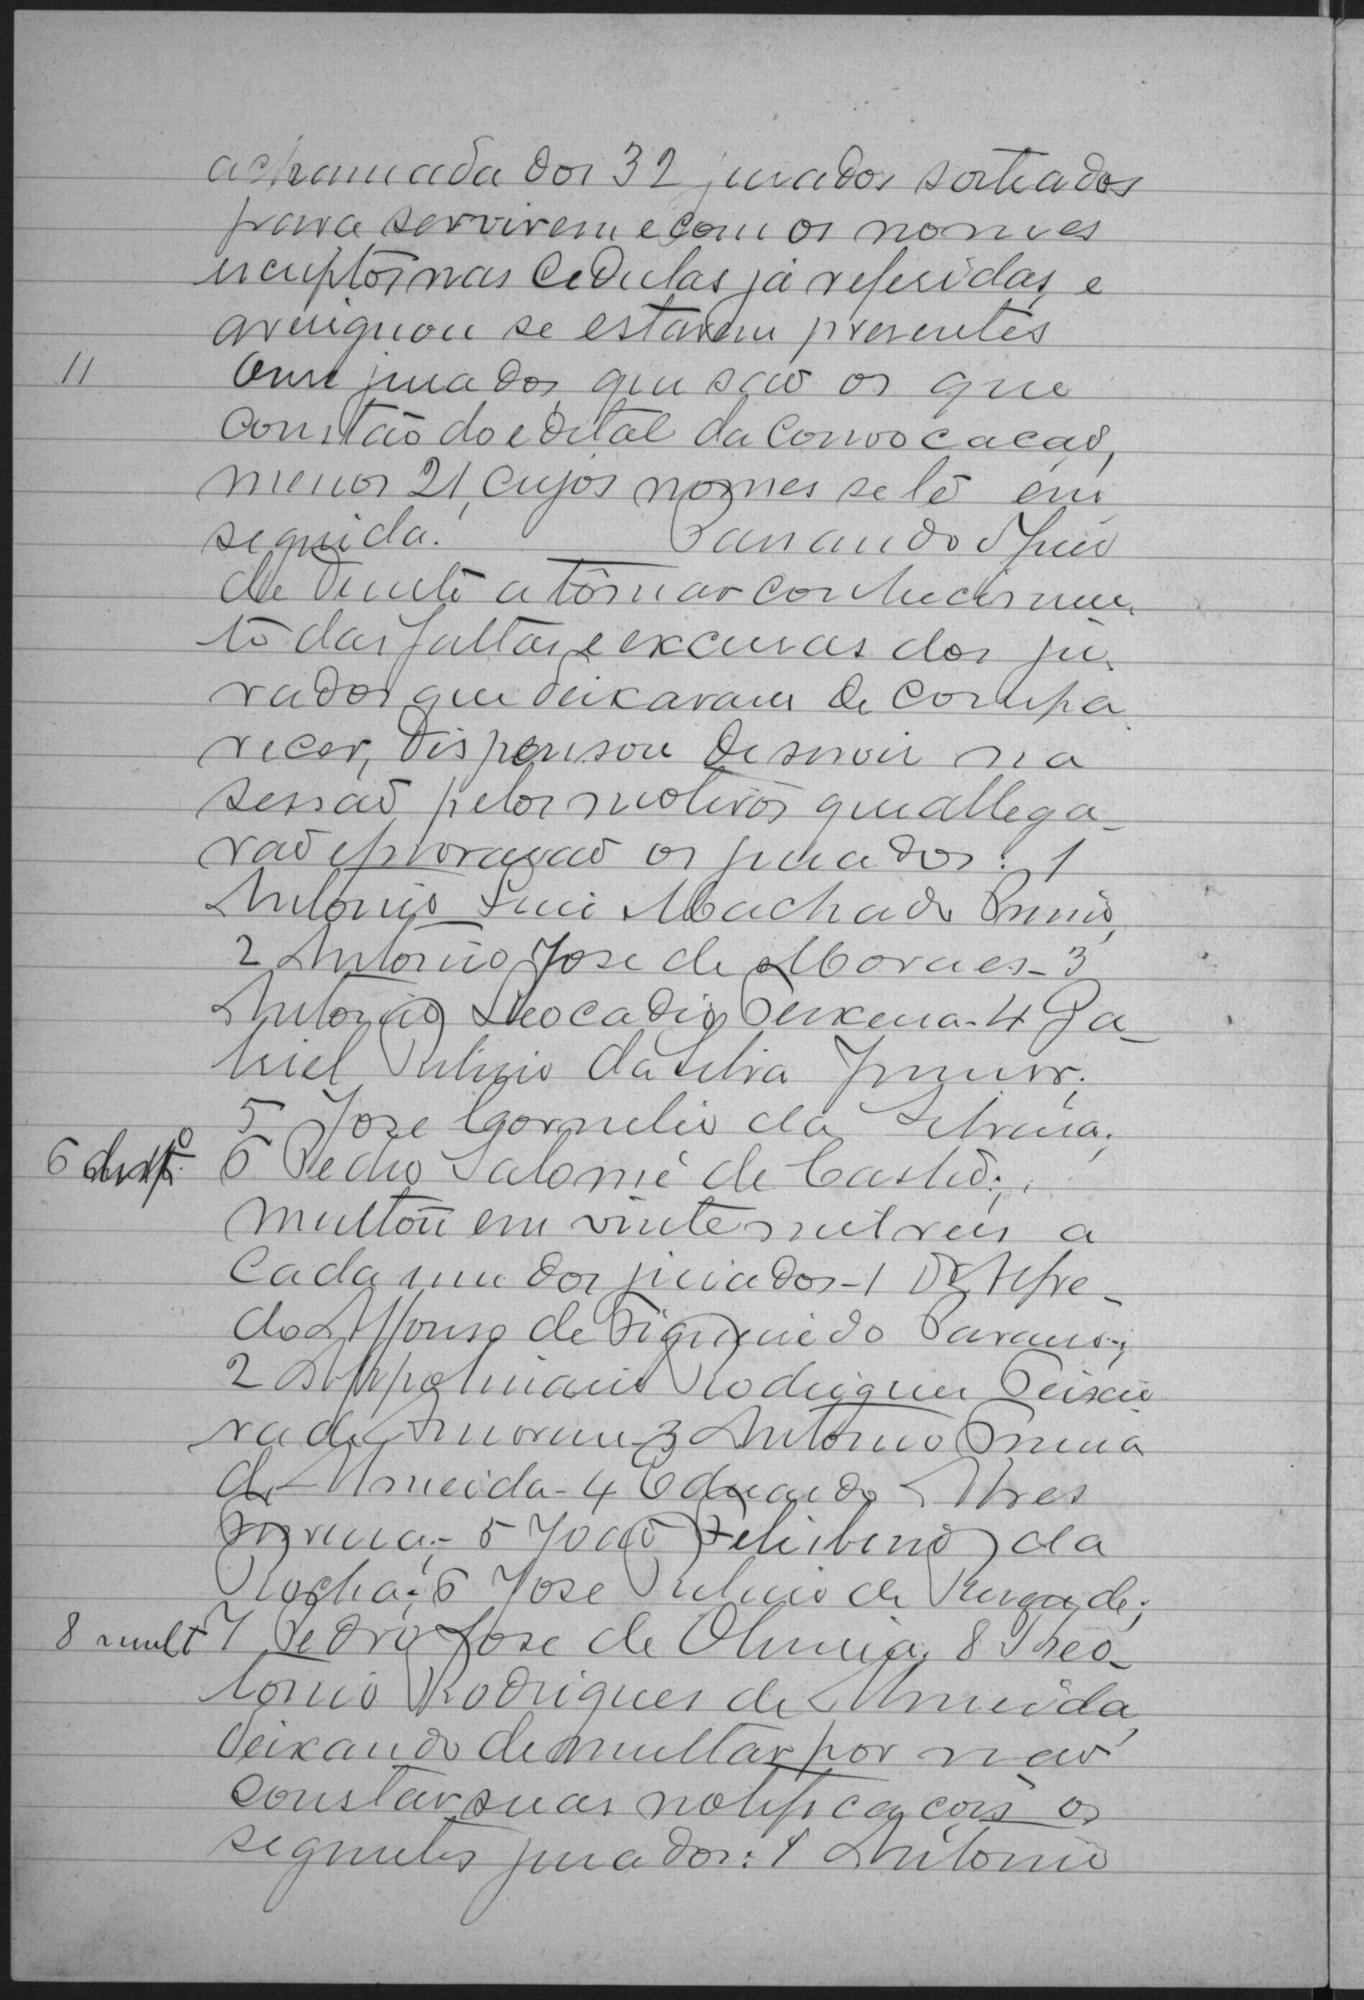 a chamada dos 32 jurados sorteados
para servirem e com os nomes
escriptos nas cedulas já referidas, e
averignou se estarem presentes
11 onze jurados, que são os que
constão do edital da convocacão,
menos 21, cujos nomes se lê em
seguida. Passando o Juiz
de Direito a tomar conhecimen
to das faltas e excusas dos ju
rados que deixaram de compa
recer, dispensou de servir na
sessão pelos motivos que allega-
rão e provarão os jurados: 1
Antonio Luiz Machado Primo,
2 Antonio José de Moraes - 3
Antonio Leocadio Teixeira - 4 Ga-
briel da Silva Junior;
5 José Cornelio da Silveira;
6 disp.º 6 Pedro Salomé de Castro;
multou em vinte mil reis a
cada um dos jurados - 1 Dr Alfre-
do Affonso de Figueiredo
2 Appoliniario Rodrigues Teixei
ra de Amorim 3 Antonio
de Almeida - 4 Eduardo Alves
5 João Felisbino da
Rocha; 6 José de
8 mult 7 Pedro José de Oliveira, 8 Theo-
tonio Rodrigues de Almeida,
deixando de multar por não
constar suas notificações os
seguintes jurados: 1 Antonio